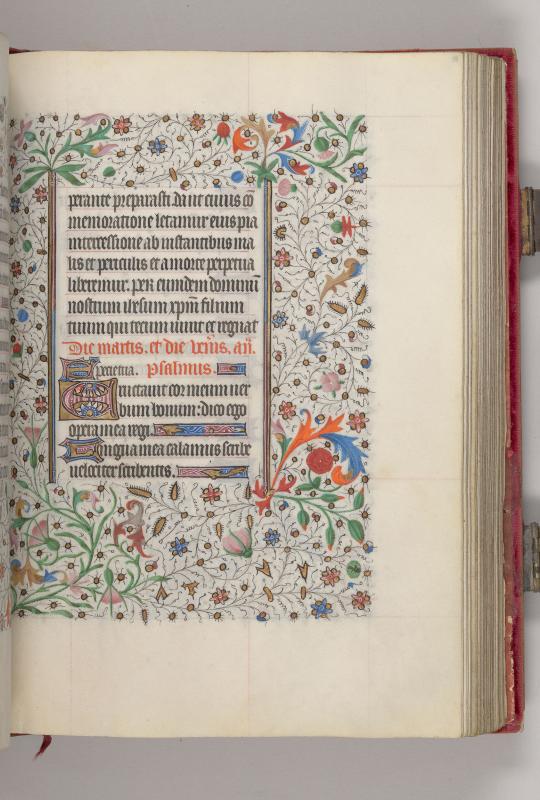 perante preparasti da ut cuius cō
memoratione letamur eius pia
intercessione ab instantibus ma
lis et periculis et a morte perpetua
liberemur. Per eundem dominū
nostrum ihesum xp̄m filium
tuum qui tecum viuit et regnat
Die martis. et die veneris. añ.
Specietua. Psalmus.
Eructauit cor meum ver
bum bonum: dico ego
opera mea regi.
Lingua mea calamus scribe
uelociter scribentis.